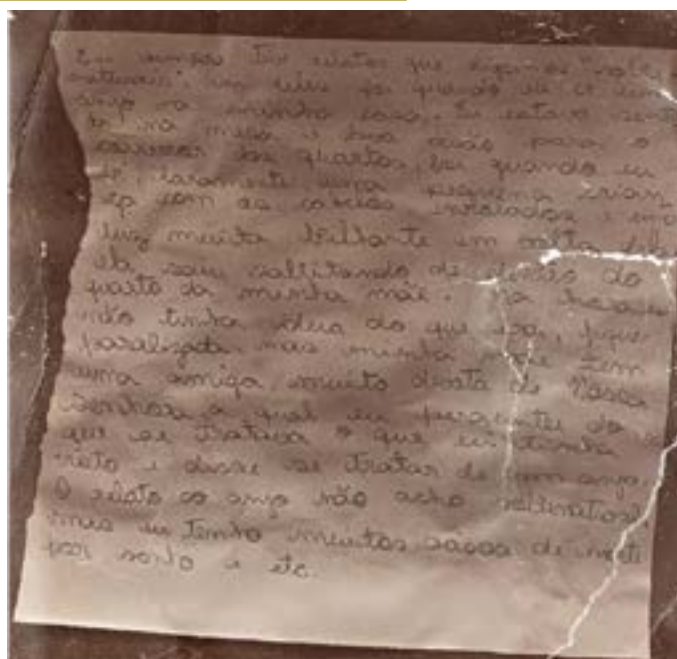 Eu sempre tive relatos que
um deles foi quando eu vi um
anjo na minha casa. Eu estava sent
na mesa e dava para o
corredor dos quartos, foi quando eu
vi, claramente uma pequena crian
ça com os cabelos enrolados e uma
luz muito brilhante em volta dela
ela saiu saltitando de dentro do
quarto da minha mãe. Na hora eu
não tinha ideia do que era, fiquei
paralizada mas minha mãe tem
uma amiga muito devota de Nossa
Senhora a qual eu perguntei do
que se tratava o que eu tinha
visto e disse se tratar de um anjo.
O relato do anjo não acho
mas eu tenho muitos casos de
por sonho e etc.